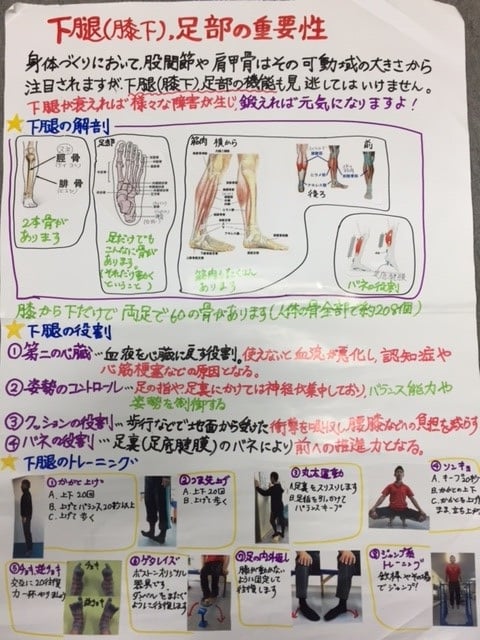 下腿(膝下),足部の重要性
身体づくりにおいて,股関節や肩甲骨はその可動域の大きさから
注目されますが,下腿(膝下),足部の機能も見逃してはいけません。
下腿が衰えれば様々な障害が生じ,鍛えれば元気になりますよ!
★下腿の解剖
脛骨
腓骨
2本骨が
あります
足だけでも
こんなに骨が
あります。
(それだけ動かく
ということ)
筋肉 横から
筋肉もたくさん
あります
後ろ
前
バネの役割
膝から下だけで両足で60の骨があります(人体の骨全部で約208個)
★下腿の役割
①第二の心臓…血液を心臓に戻す役割。使えないと血流が悪化し,認知症や
心筋梗塞などの原因となる。
②姿勢のコントロール…足の指や足裏にかけては神経が集中しており,バランス能力や
姿勢を制御する
③クッションの役割…歩行などで地面から受けた衝撃を吸収し,腰膝などへの負担を減らす
④バネの役割…足裏(足底腱膜)のバネにより前への推進力となる。
★下腿のトレーニング
①かかと上げ
A. 上下20回
B. 上げてバランス20秒以上
C. 上げて歩く
②つま先上げ
A. 上下20回
B. 上げて歩く
③丸太運動
A. 足裏をスリスリします
B. 足指を引っかけて
バランスキープ
④ソンキョ
A. キープ20秒
B. かかとの上下
C. かかとを上げた
まま,立ち上がる
⑤チョキ,逆チョキ
交互に20往復
力一杯やりましょう
チョキ
逆チョキ
⑥ゲタレイズ
⑦足の内外返し
膝が動かない
ように固定して
往復します
⑧ジャンプ系
トレーニング
でジャンプ!